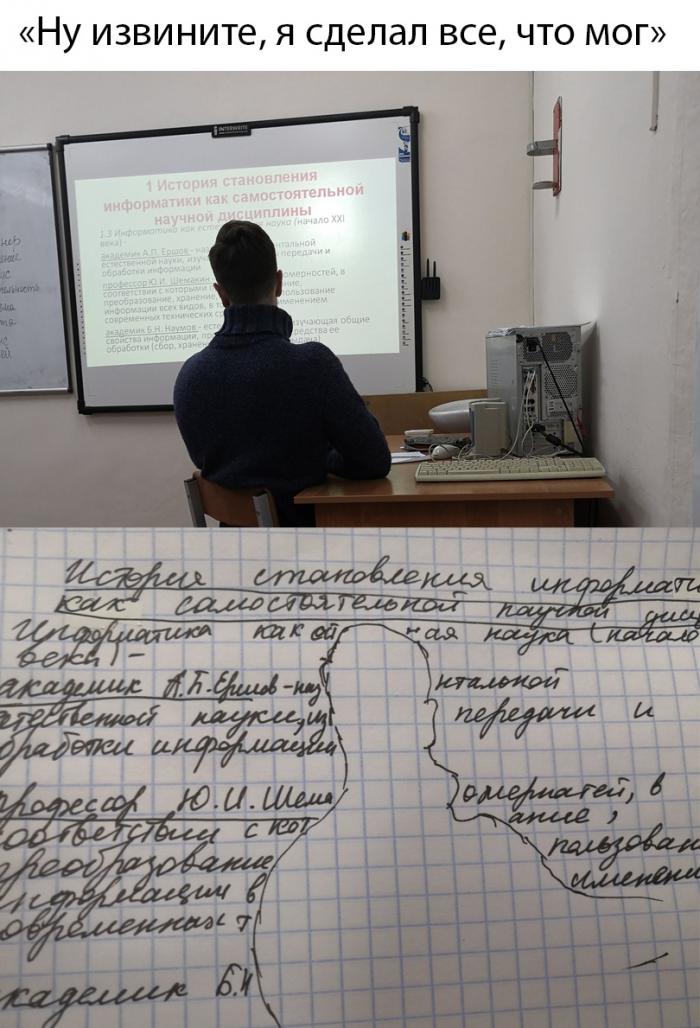 «Ну извините, я сделал все, что мог»
INTERWRITE
1 История становления
информатики как самостоятельной
научной дисциплины
1.3 Информатика как есте наука (начало XXI
века) -
академик А.П. Ершов - наз ентальной
естественной науки, изуча передачи и
обработки информации
профессор Ю.И. Шемакин омерностей, в
соответствии с которыми ание,
преобразование, хранение, пользование
информации всех видов, в т именением
современных технических ср
академик Б.Н. Наумов - есте изучающая общие
свойства информации, пр редства ее
обработки (сбор, хранен ыдача)
История становления информати
как самостоятельной научной дисц
Информатика как ой ная наука (начало
века) -
академик А.П. Ершов - наз нтальной
атественной науки, из передачи и
бработки информации
профессор Ю.И. Шема омернатей, в
соответствии с кот ание,
преобразование пользован
информации в именени
овременных т
академик Б.Н